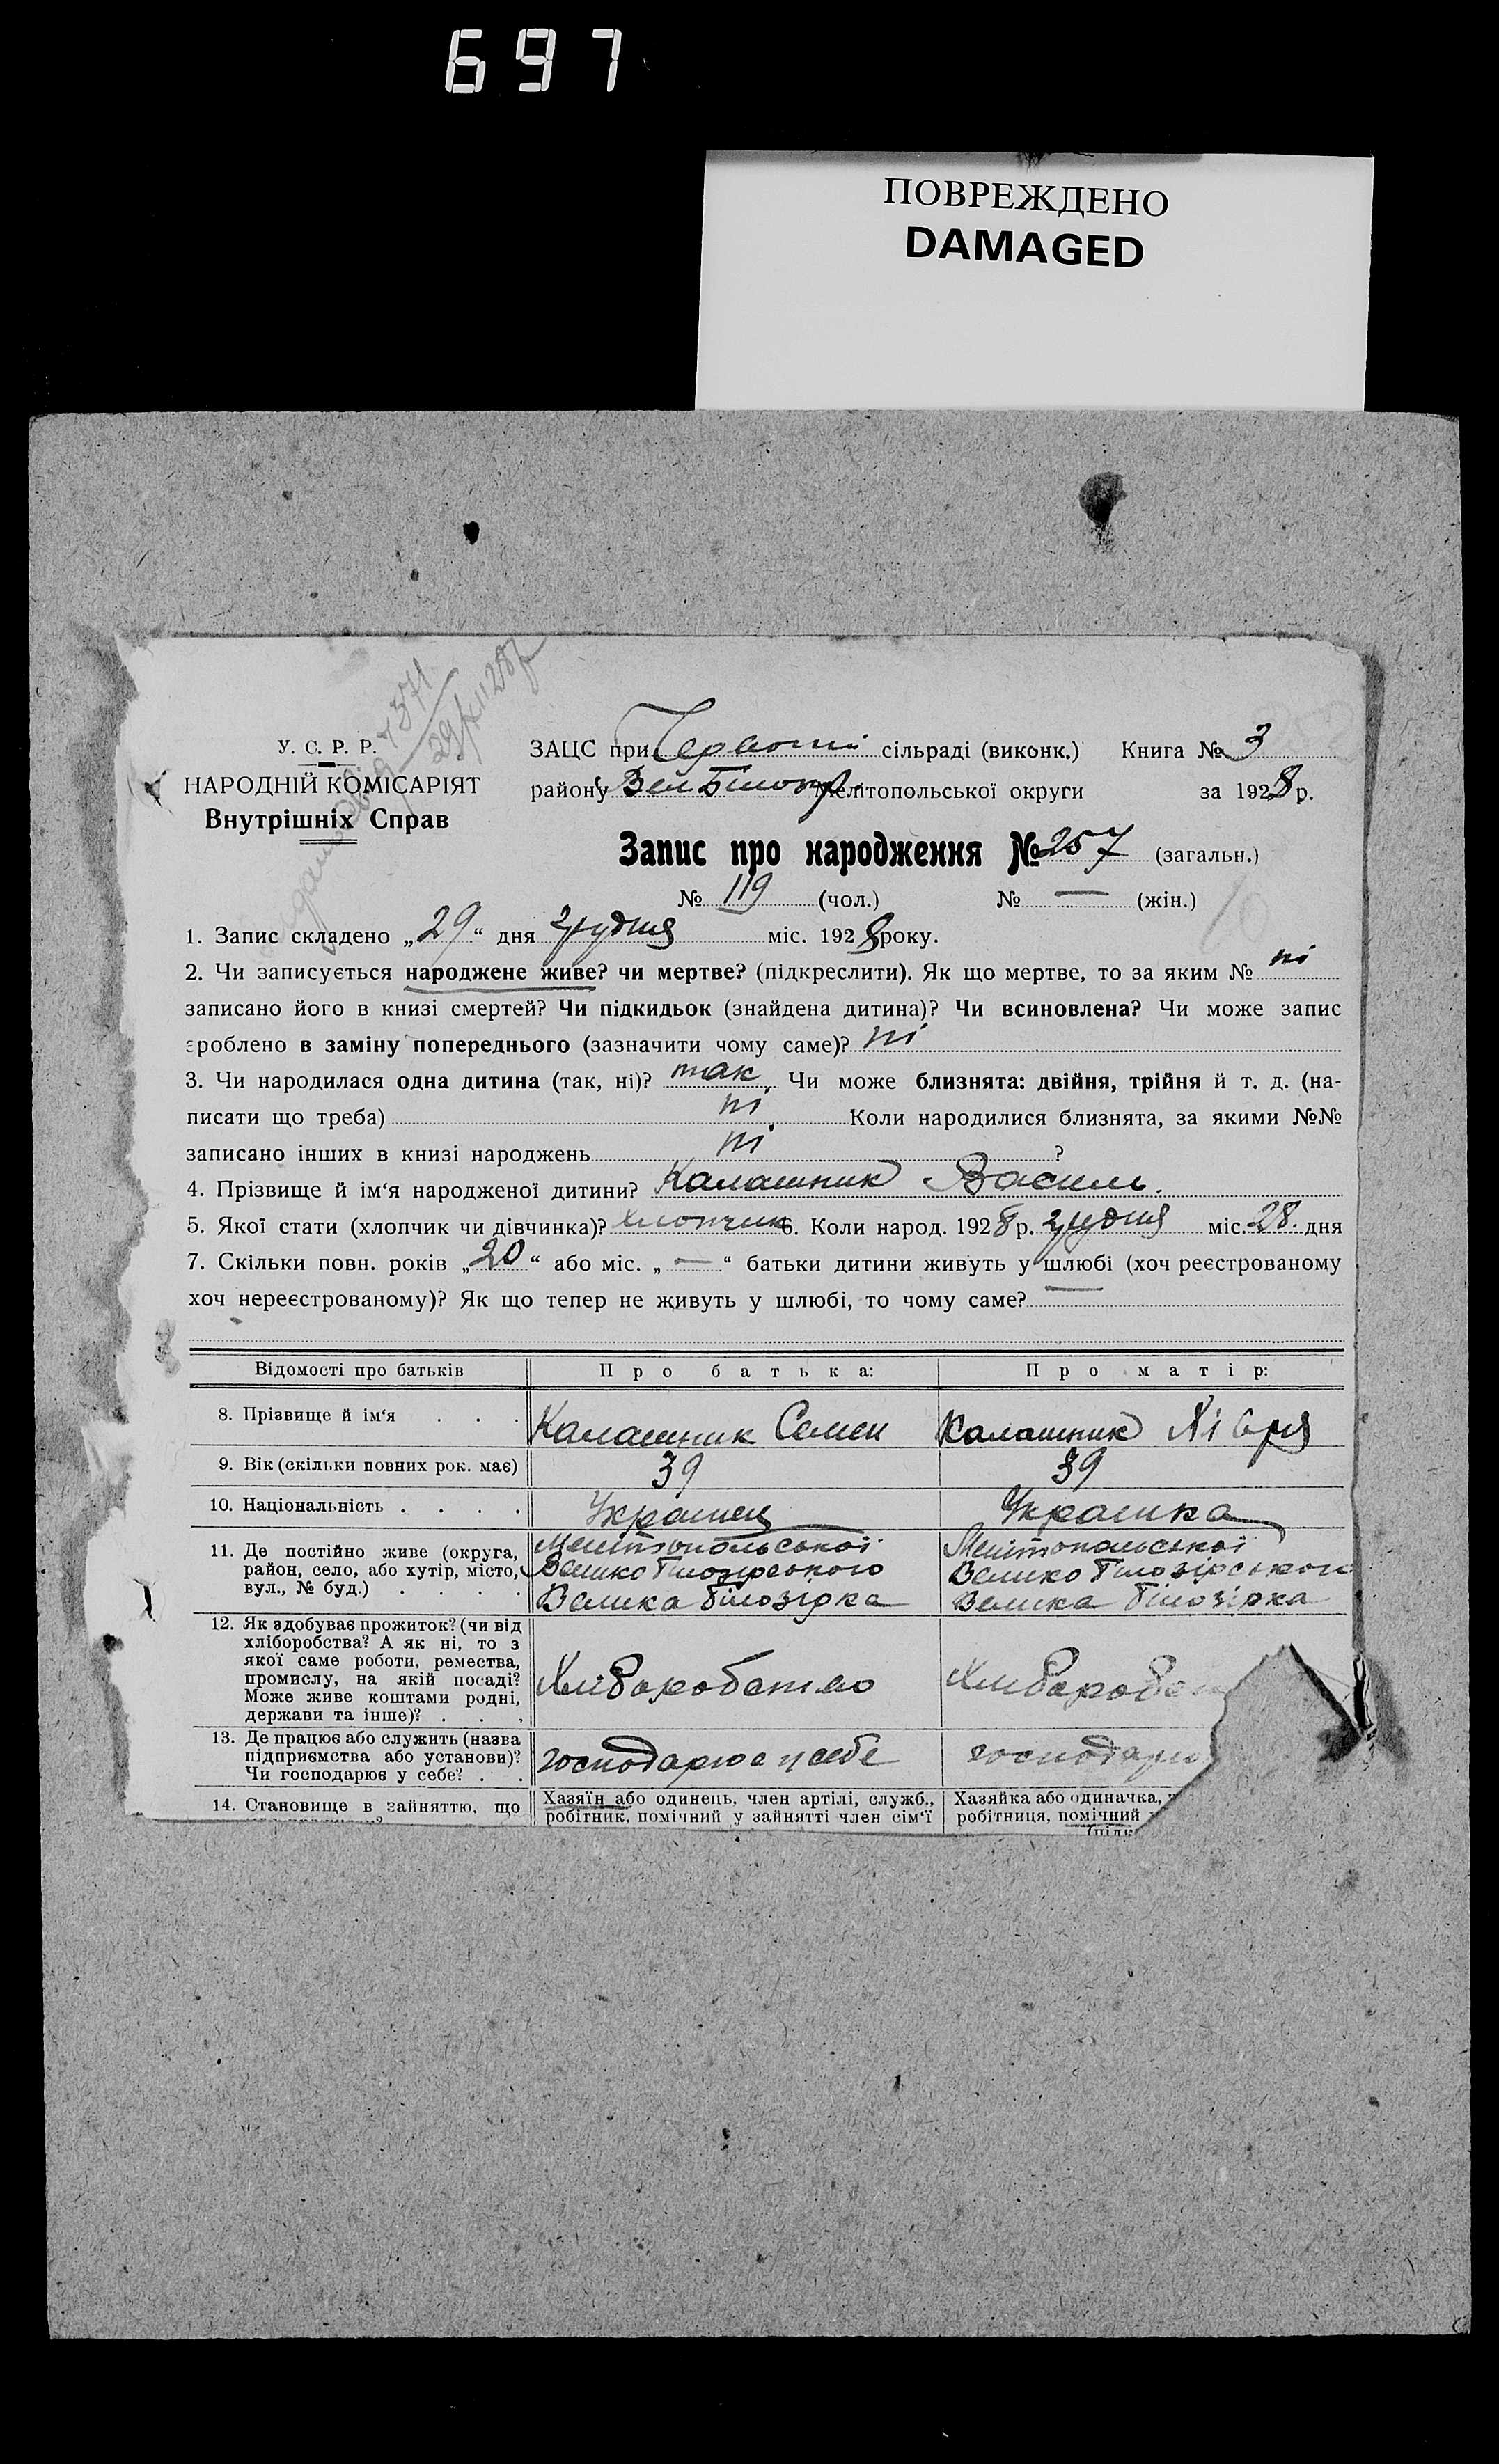 697
ПОВРЕЖДЕНО
DAMAGED
371
29/XII 28р
У. С. Р. Р.
НАРОДНІЙ КОМІСАРІЯТ
Внутрішніх Справ
ЗАЦС при Червоній сільраді (виконк.) Книга № 3
району Вел Білозер Мелітопольської округи за 1928 р.
Запис про народження № 257 (загальн.)
№ 119 (чол.) № — (жін.)
1. Запис складено „29“ дня грудня міс. 1928 року.
2. Чи записується народжене живе? чи мертве? (підкреслити). Як що мертве, то за яким № ні
записано його в книзі смертей? Чи підкидьок (знайдена дитина)? Чи всиновлена? Чи може запис
зроблено в заміну попереднього (зазначити чому саме)? ні
3. Чи народилася одна дитина (так, ні)? так. Чи може близнята: двійня, трійня й т. д. (на-
писати що треба) ні. Коли народилися близнята, за якими №№
записано інших в книзі народжень ні ?
4. Прізвище й ім‘я народженої дитини? Калашник Василь.
5. Якої стати (хлопчик чи дівчинка)? хлопчик 6. Коли народ. 1928 р. грудня міс. 28. дня
7. Скільки повн. років „20“ або міс. „—“ батьки дитини живуть у шлюбі (хоч реєстрованому
хоч нереєстрованому)? Як що тепер не живуть у шлюбі, то чому саме? —
Відомості про батьків Про батька: Про матір:
8. Прізвище й ім‘я . . . Калашник Семен Калашник
9. Вік (скільки повних рок. має) 39 39
10. Національність . . . . Українец Українка
11. Де постійно живе (округа, Мелітопольської Мелітопольської
район, село, або хутір, місто, Велико Білозірського Велико Білозірського
вул., № буд.) . . . . Велика Білозірка Велика Білозірка
12. Як здобуває прожиток? (чи від
хліборобства? А як ні, то з
якої саме роботи, ремества,
промислу, на якій посаді? Хліборобство Хлібороб
Може живе коштами родні,
держави та інше)? . . .
13. Де працює або служить (назва
підприємства або установи)? господарює у себе господарю
Чи господарює у себе? . .
14. Становище в зайняттю, що Хазяїн або одинець, член артілі, служб., Хазяйка або одиначка,
робітник, помічний у зайнятті член сім‘ї робітниця, помічний
(підк